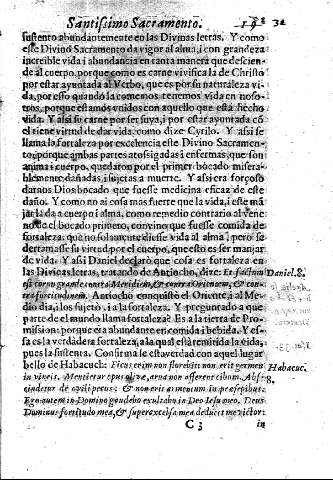 Santissimo Sacramento. 32
sustento abundantemente en las Divinas letras. Y como
este Divino Sacramento da vigor al alma, i con grandeza
increible vida i abundancia en tanta manera que descien-
de al cuerpo, porque como es carne vivifica la de Christo
por estar ayuntada al Verbo, que es por su naturaleza vi-
da, por esso quando la comemos tenemos vida en noso-
tros, porque estamos unidos con aquello que està hecho
vida. Y assi su carne por ser suya, i por estar ayuntada cõ
el tiene virtud de dar vida, como dize Cyrilo. Y assi se
llama la fortaleza por excelencia este Divino Sacramen-
to, porque ambas partes atosigadas i enfermas, que son
anima i cuerpo, quedaron por el primer bocado misera-
blemente dañadas i sujetas a muerte. Y assi era forçoso
darnos Dios bocado que fuesse medicina eficaz de este
daño. Y como no ai cosa mas fuerte que la vida, i este mã
jar la da a cuerpo i alma, como remedio contrario al vene
no de el bocado primero, convino que fuesse comida de
fortaleza, que no solamente diesse vida al alma, pero se
derramasse su virtud por el cuerpo, que esto es ser manjar
de vida. Y assi Daniel declarò que cosa es fortaleza en
las Divinas letras, tratando de Antiocho, dize: Et factum
est cornu grande contra Meridiem, & contra Orientem, & con-
tra fortitudinem. Antiocho conquistò el Oriente, i al Me-
dio dia, i los sujetò, i a la fortaleza. Y preguntado a que
parte de el mundo llama Fortaleza? Es a la tierra de Pro-
mision: porque era abundante en comida i bebida. Y es-
sa es la verdadera fortaleza, a la qual està remitida la vida,
pues la sustenta. Confirma le esta verdad con aquel lugar
bello de Habacuch: Ficus enim non florebit: non erit germen
in vineis. Mentietur opus olivæ, arva non afferent cibum. Abs-
cindetur de ovili pecus: & non erit armentum in præsepibus.
Ego autem in Domino gaudebo exultabo in Deo Iesu meo. Deus
Dominus fortitudo mea, & super excelsa mea deducet me victor:
Daniel. 8.
Habacuc.
8.
C 3
in